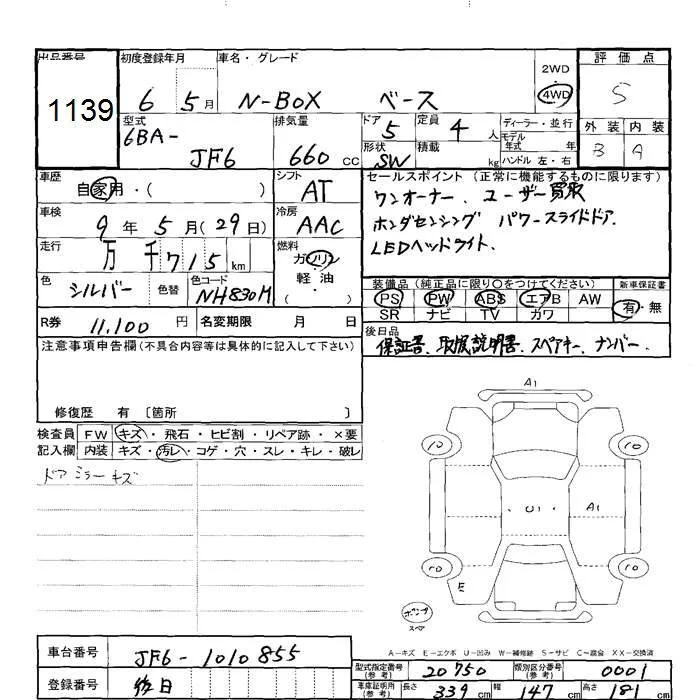 出品番号 1139
初度登録年月 6 5月
車名・グレード N-BOX ベース
2WD 4WD
評価点 S
型式 6BA-
JF6
排気量 660 cc
ドア 5
定員 4人
形状 SW
積載 kg
ディーラー・並行
モデル年式 年
ハンドル 左・右
外装 内装
B A
車歴 自家用・( )
シフト AT
車検 9年5月(29日)
冷房 AAC
走行 万千715km
燃料 ガソリン
軽油
( )
色 シルバー 色替 色コード NH830M
R券 11,100円 名変期限 月 日
セールスポイント (正常に機能するものに限ります)
ワンオーナー、ユーザー買取
ホンダセンシング パワースライドドア、
LEDヘッドライト、
装備品(純正品に限り○をつけてください) 新車保証書
PS PW ABS エアB AW 有・無
SR ナビ TV カワ
後日品
保証書、取扱説明書、スペアキー、ナンバー、
注意事項申告欄(不具合内容等は具体的に記入して下さい)
修復歴 有 〔箇所 〕
検査員 FW キズ・飛石・ヒビ割・リペア跡・×要
記入欄 内装 キズ・汚レ・コゲ・穴・スレ・キレ・破レ
ドアミラーキズ
A1
10 10
U1 A1
10 10
E
スペア
A-キズ E-エクボ U-凹み W-補修跡 S-サビ C-腐食 XX-交換済
車台番号 JF6-1010855
登録番号 後日
型式指定番号(参考) 20750 類別区分番号(参考) 0001
車庫証明用(参考) 長さ 339cm 幅 147cm 高さ 181cm